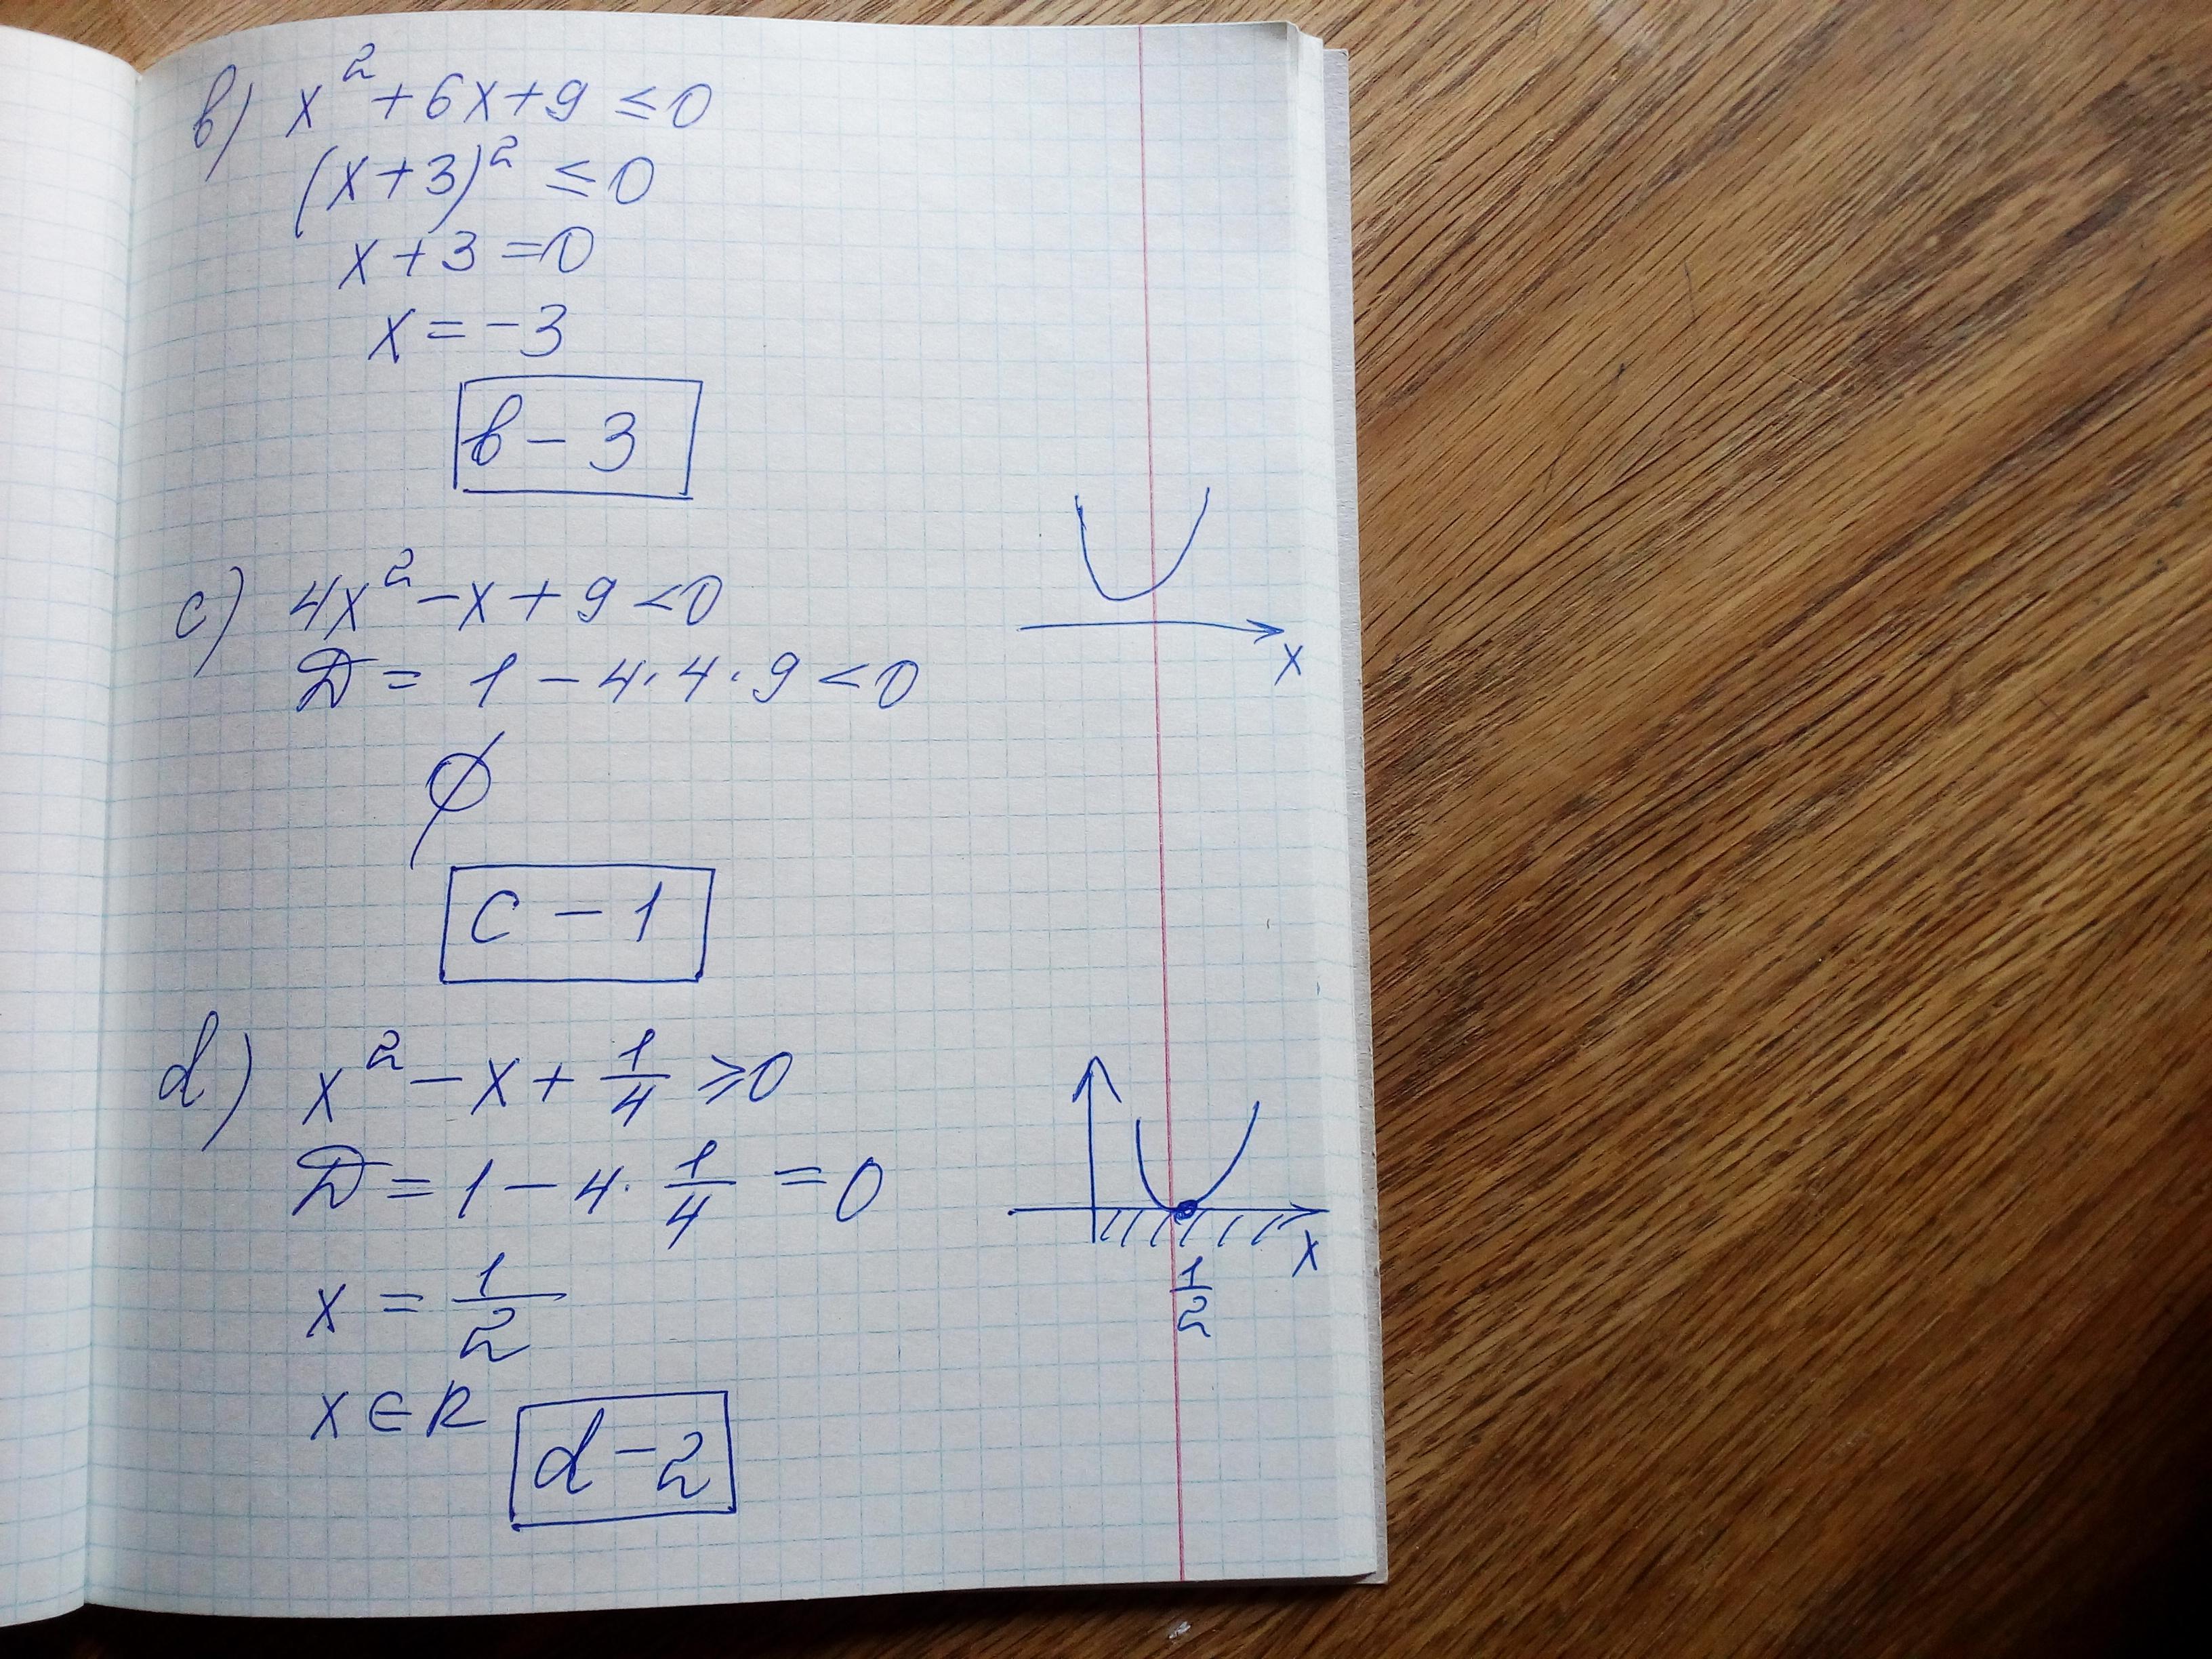 b) x² + 6x + 9 ≤ 0
(x + 3)² ≤ 0
x + 3 = 0
x = -3
b - 3
c) 4x² - x + 9 < 0
D = 1 - 4 · 4 · 9 < 0
x
∅
c - 1
d) x² - x + 1/4 ≥ 0
D = 1 - 4 · 1/4 = 0
x
1/2
x = 1/2
x ∈ R
d - 2